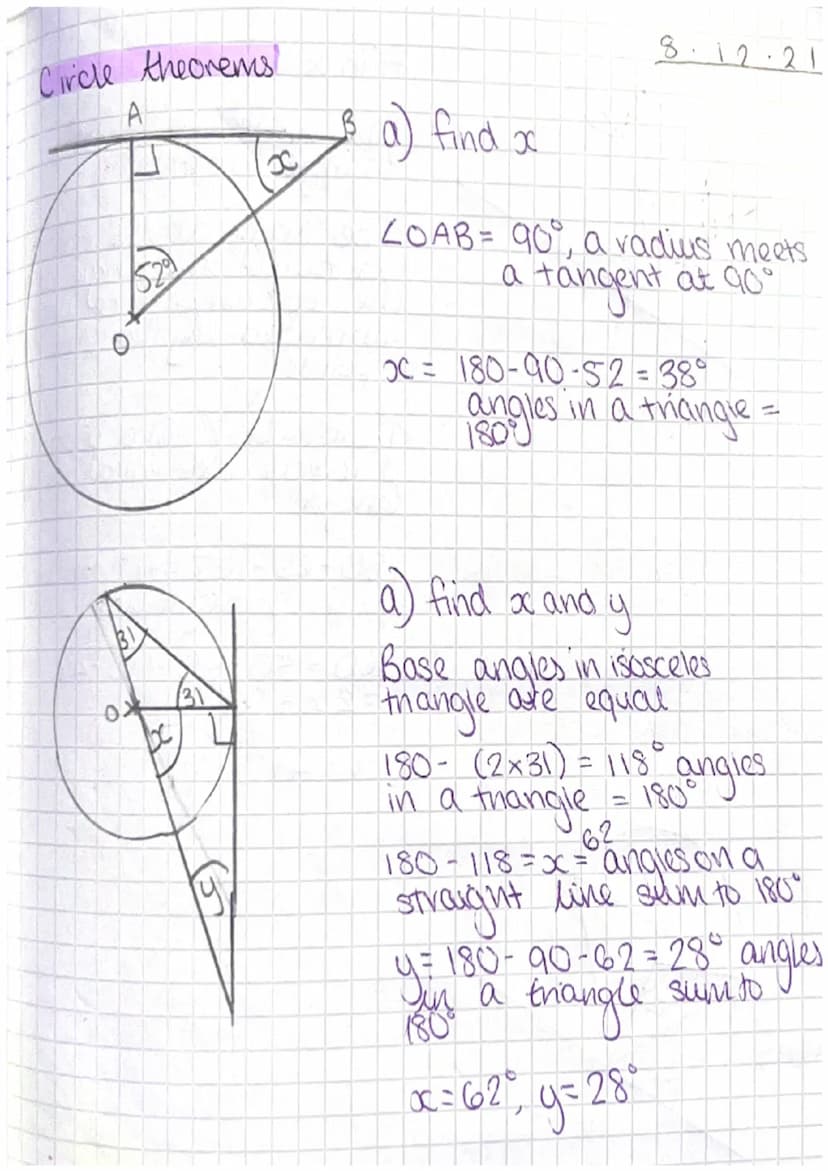 Circle theorems
8.12.21
A
B
x
52°
O
a) find x
∠OAB = 90°, a radius meets
a tangent at 90°
x = 180-90-52 = 38°
angles in a triangle =
180°
31
31
O
x
y
a) find x and y
Base angles in isosceles
triangle are equal
180- (2×31) = 118° angles
in a triangle = 180°
62
180-118 = x = angles on a
straight line sum to 180°
y = 180-90-62 = 28° angles
in a triangle sum to
180°
x = 62°, y = 28°